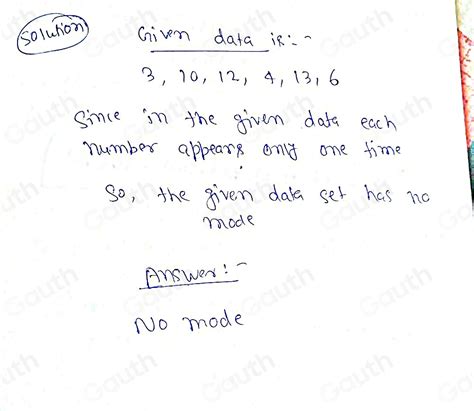 Solution
Given data is:-
3, 10, 12, 4, 13, 6
Since in the given data each
number appears only one time
So, the given data set has no
mode
Answer:-
No mode